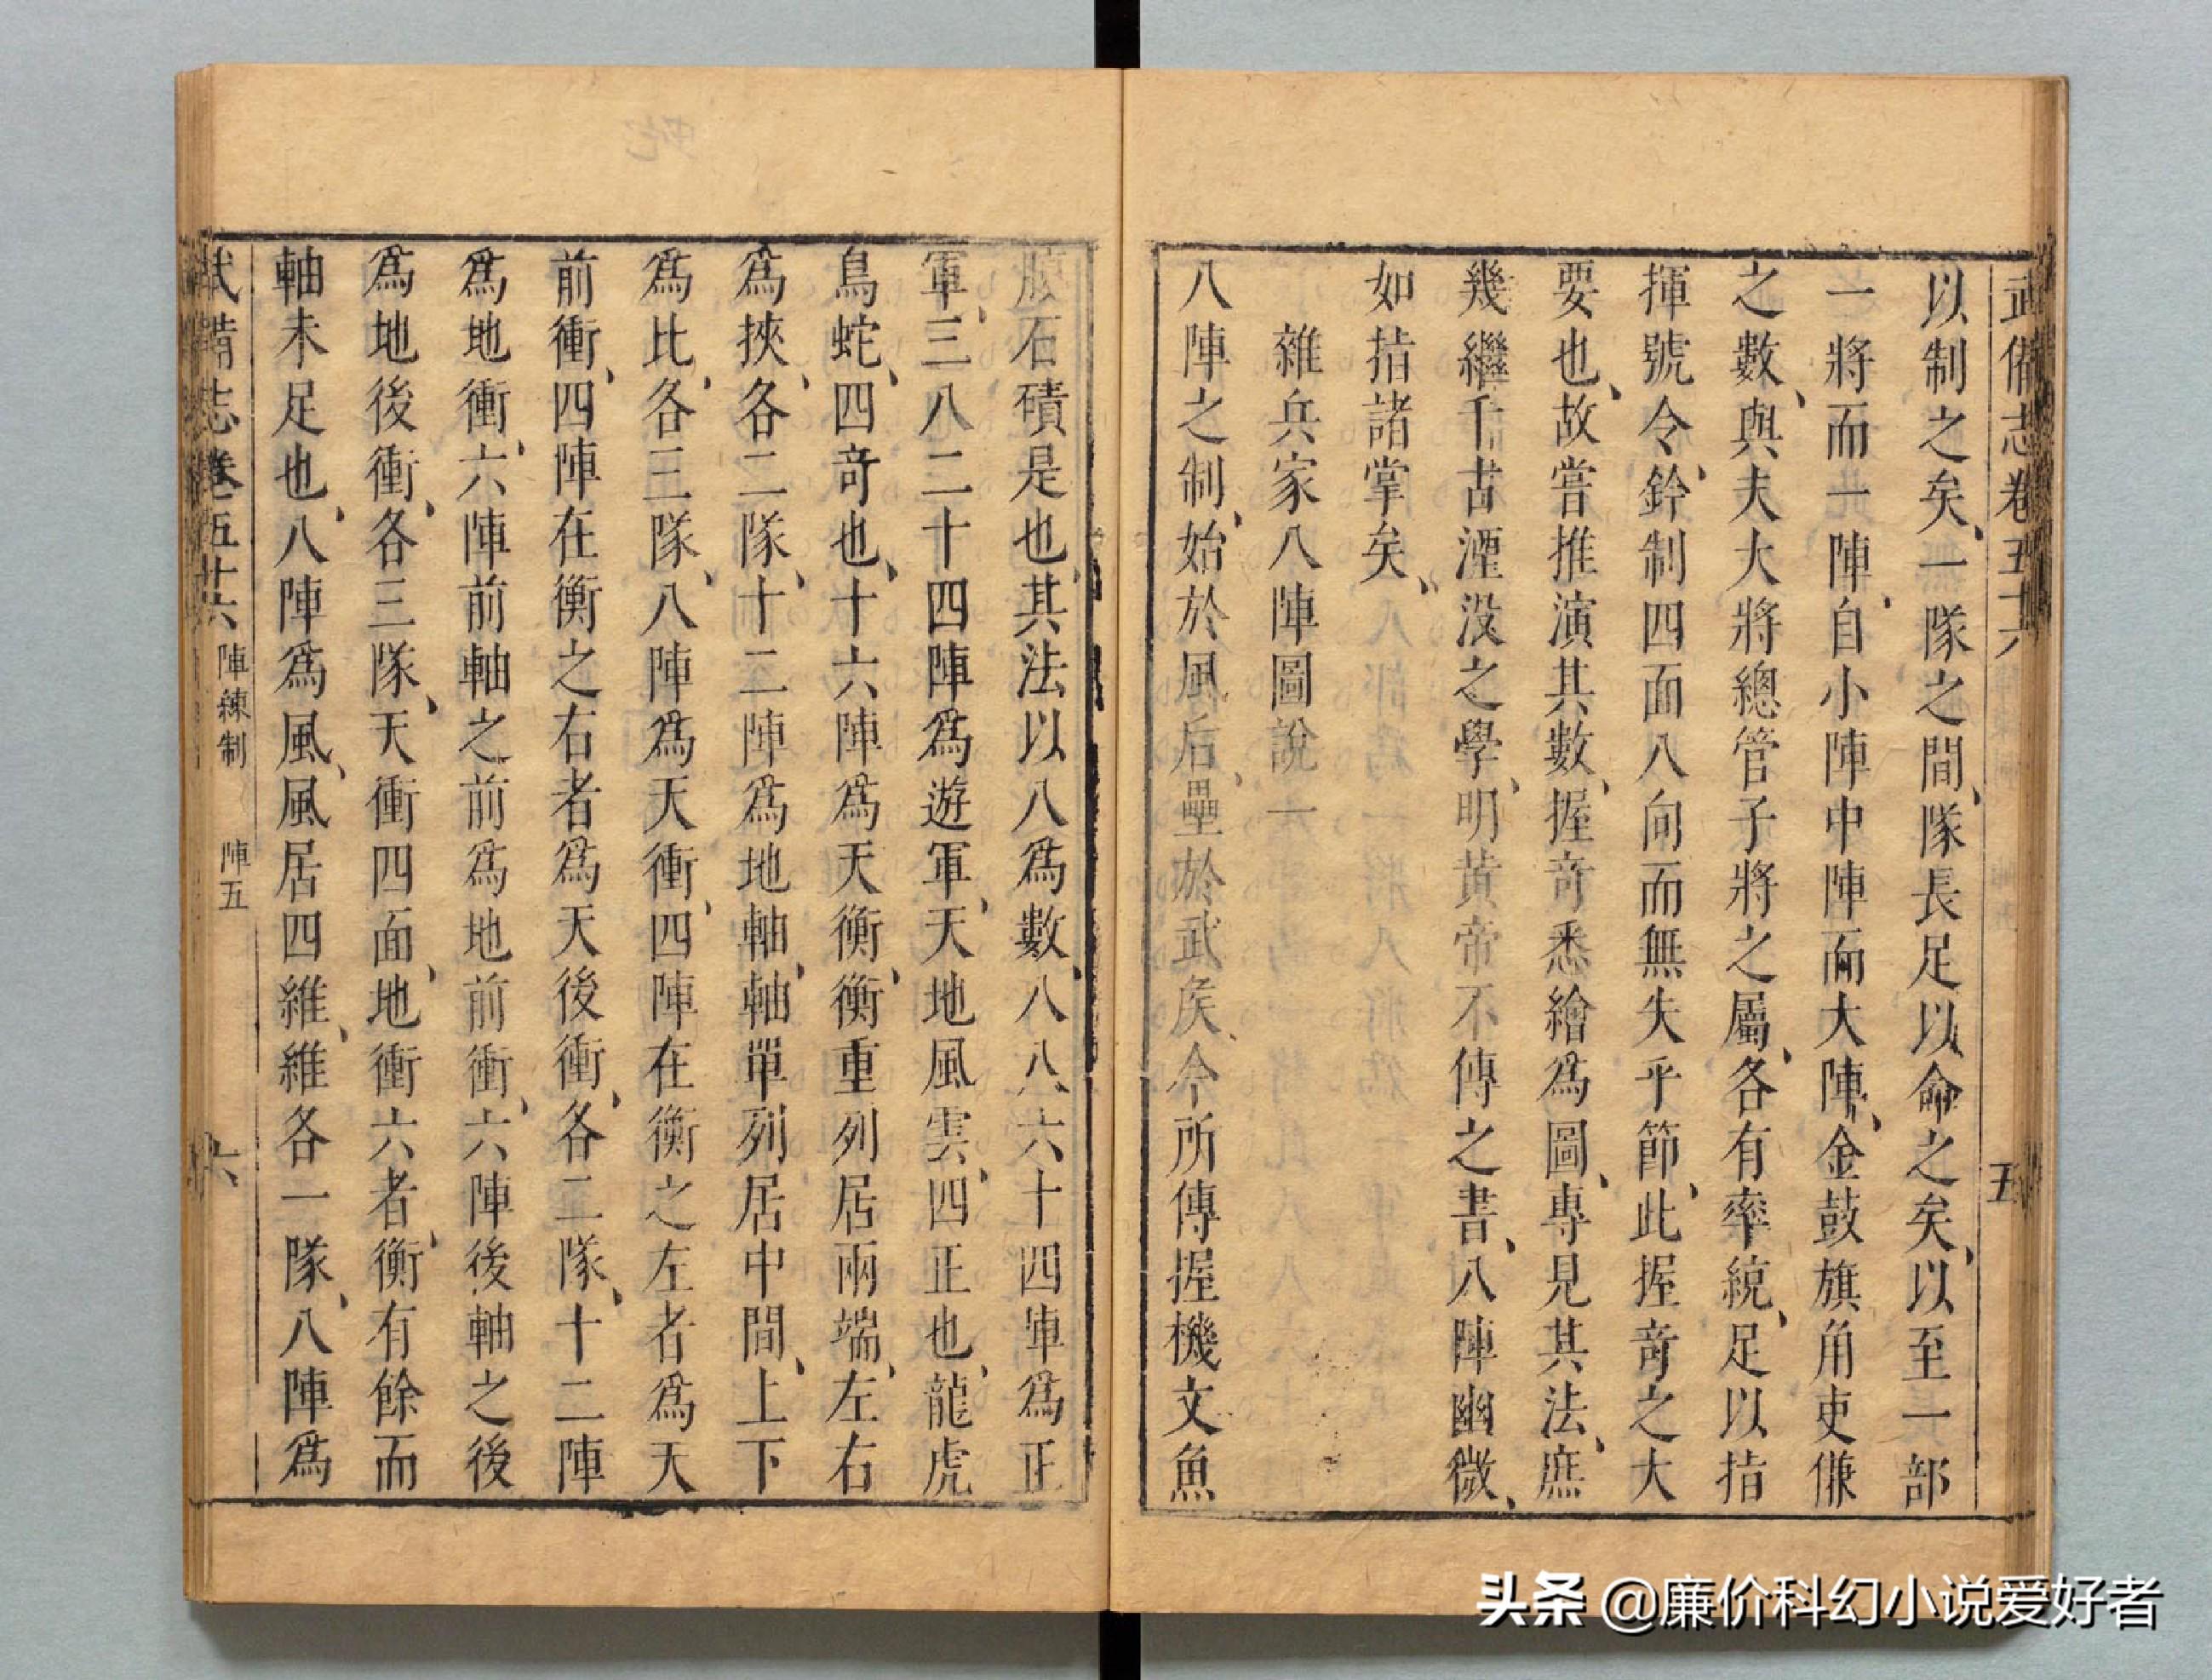 武備志卷五十六
五
以制之矣、一隊之間、隊長足以命之矣、以至一部
一將而一陣、自小陣中陣而大陣、金鼓旗角吏傔
之數、與夫大將總管子將之屬、各有率統、足以指
揮號令、鈐制四面八向而無失乎節、此握竒之大
要也、故嘗推演其數、握竒悉繪爲圖、專見其法、庶
幾繼千古湮没之學、明黄帝不傳之書、八陣幽微、
如指諸掌矣、
雜兵家八陣圖說一
八陣之制、始於風后、壘於武矦、今所傳握機文魚
石磧是也、其法以八爲數、八八六十四軍爲正
軍、三八二十四陣爲遊軍、天地風雲、四正也、龍虎
鳥蛇、四竒也、十六陣爲天衡、衡重列居兩端、左右
爲挾、各二隊、十二陣爲地軸、軸單列居中間、上下
爲比、各三隊、八陣爲天衝、四陣在衡之左者爲天
前衝、四陣在衡之右者爲天後衝、各二隊、十二陣
爲地衝、六陣前軸之前爲地前衝、六陣後軸之後
爲地後衝、各三隊、天衝四面、地衝六者、衡有餘而
軸未足也、八陣爲風、風居四維、維各一隊、八陣爲
武備志卷五十六 陣練制 陣五
六
头条 @廉价科幻小说爱好者